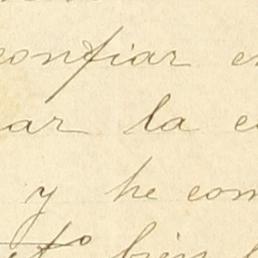 confiar e
ar la c
y he com
to bien